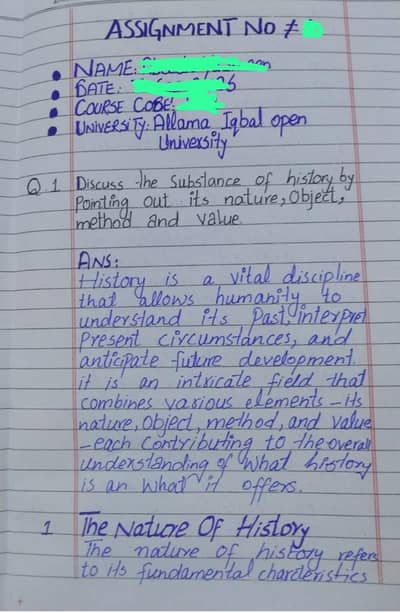 ASSIGNMENT NO #
• NAME:
• DATE:
• COURSE COBE:
• UNIVERSITY: Allama Iqbal open
University
Q.1 Discuss the Substance of history by
Pointing out its nature, Object,
method and value.
ANS:
History is a vital discipline
that allows humanity to
understand its Past, interpret
Present circumstances, and
anticipate future development.
it is an intricate field that
combines various elements - its
nature, Object, method, and value
- each Contributing to the overall
understanding of What history
is an What it offers.
1 The Nature Of History
The nature of history refers
to its fundamental charcteristics